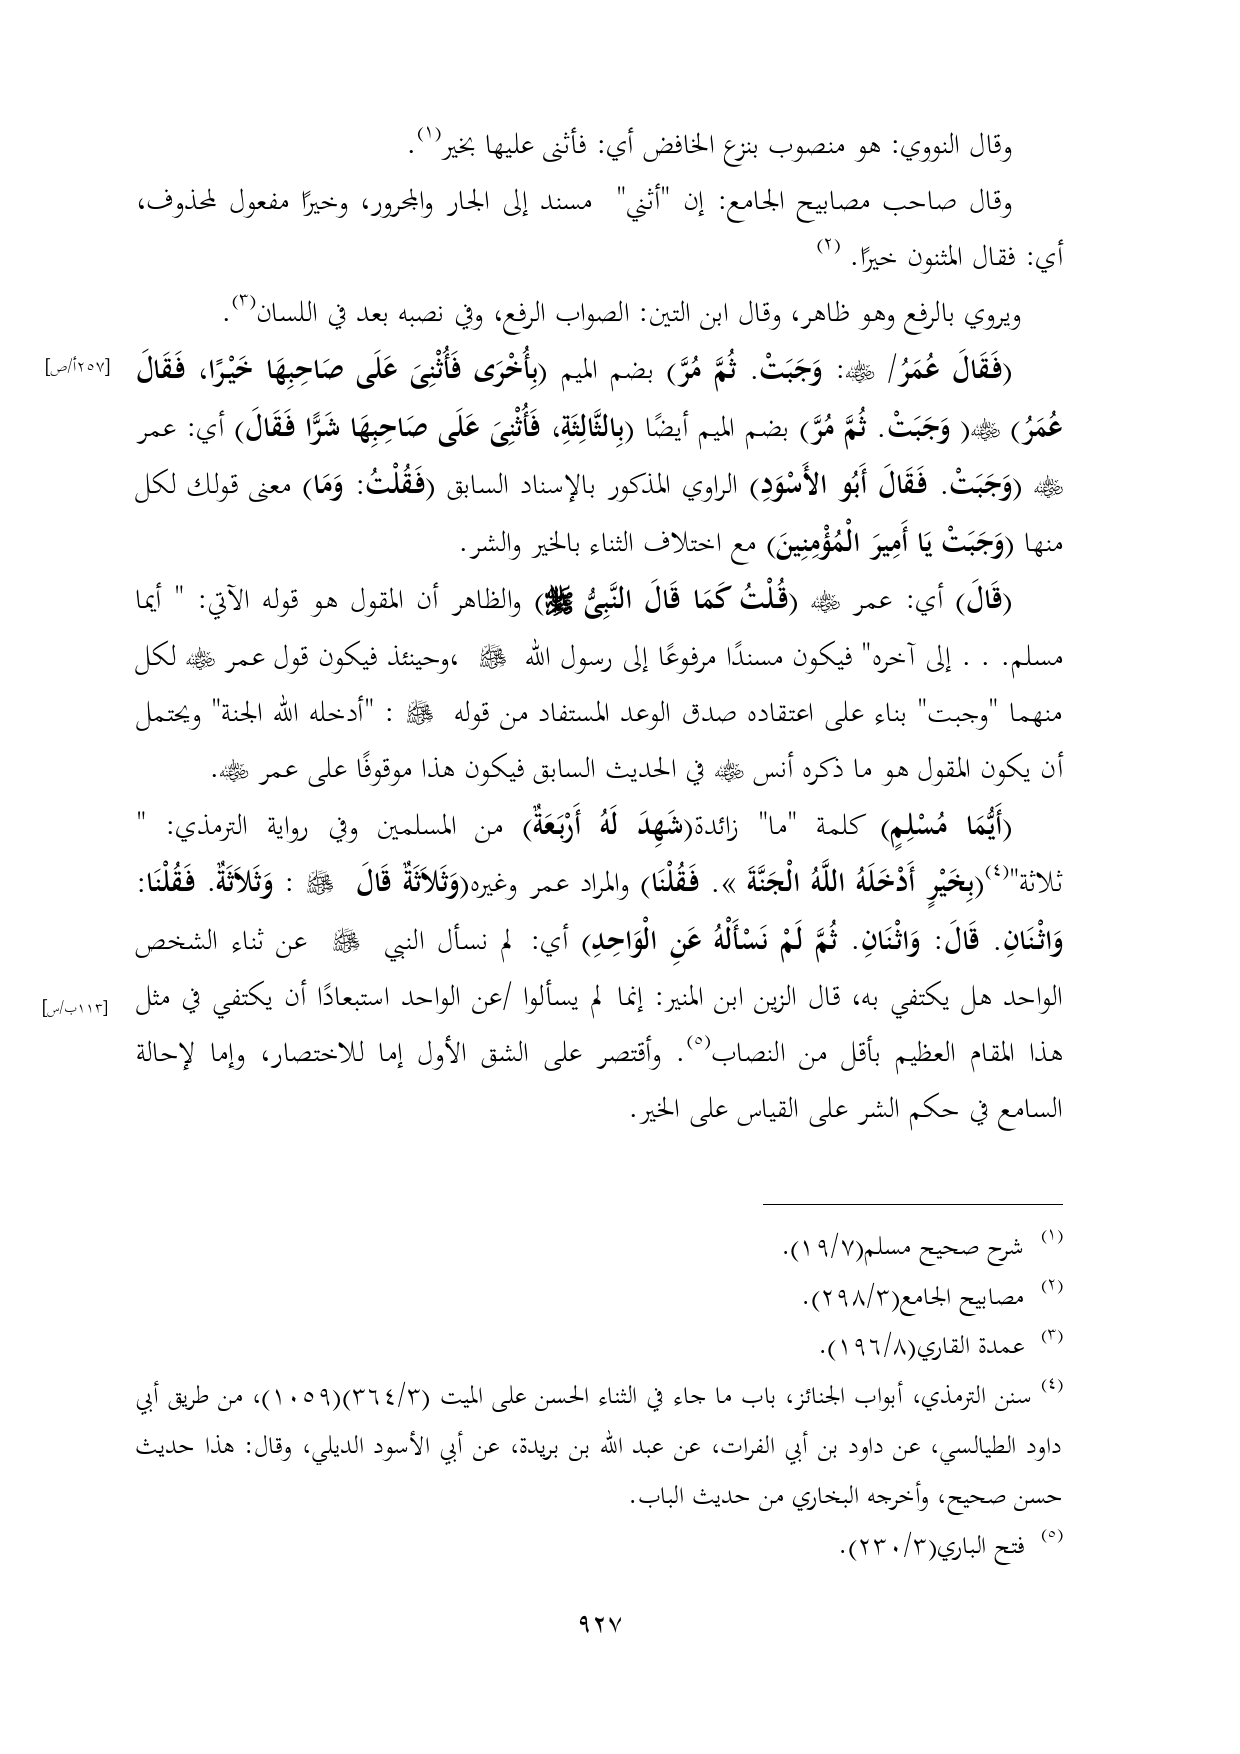 وقال النووي: هو منصوب بنزع الخافض أي: فأثنى عليها بخير(١).
وقال صاحب مصابيح الجامع: إن "أثني" مسند إلى الجار والمجرور، وخيرًا مفعول لمحذوف،
أي: فقال المثنون خيرًا. (٢)
ويروي بالرفع وهو ظاهر، وقال ابن التين: الصواب الرفع، وفي نصبه بعد في اللسان(٣).
(فَقَالَ عُمَرُ/ ﷺ: وَجَبَتْ. ثُمَّ مُرَّ) بضم الميم (بِأُخْرَى فَأُثْنِىَ عَلَى صَاحِبِهَا خَيْرًا، فَقَالَ [٢٥٧أ/ص]
عُمَرُ) رضي الله عنه( وَجَبَتْ. ثُمَّ مُرَّ) بضم الميم أيضًا (بِالثَّالِثَةِ، فَأُثْنِىَ عَلَى صَاحِبِهَا شَرًّا فَقَالَ) أي: عمر
رضي الله عنه (وَجَبَتْ. فَقَالَ أَبُو الأَسْوَدِ) الراوي المذكور بالإسناد السابق (فَقُلْتُ: وَمَا) معنى قولك لكل
منها (وَجَبَتْ يَا أَمِيرَ الْمُؤْمِنِينَ) مع اختلاف الثناء بالخير والشر.
(قَالَ) أي: عمر رضي الله عنه (قُلْتُ كَمَا قَالَ النَّبِىُّ ﷺ) والظاهر أن المقول هو قوله الآتي: " أيما
مسلم. . . إلى آخره" فيكون مسندًا مرفوعًا إلى رسول الله ﷺ ،وحينئذ فيكون قول عمر رضي الله عنه لكل
منهما "وجبت" بناء على اعتقاده صدق الوعد المستفاد من قوله ﷺ : "أدخله الله الجنة" ويحتمل
أن يكون المقول هو ما ذكره أنس رضي الله عنه في الحديث السابق فيكون هذا موقوفًا على عمر رضي الله عنه.
(أَيُّمَا مُسْلِمٍ) كلمة "ما" زائدة(شَهِدَ لَهُ أَرْبَعَةٌ) من المسلمين وفي رواية الترمذي: "
ثلاثة"(٤)(بِخَيْرٍ أَدْخَلَهُ اللَّهُ الْجَنَّةَ ». فَقُلْنَا) والمراد عمر وغيره(وَثَلاَثَةٌ قَالَ ﷺ : وَثَلاَثَةٌ. فَقُلْنَا:
وَاثْنَانِ. قَالَ: وَاثْنَانِ. ثُمَّ لَمْ نَسْأَلْهُ عَنِ الْوَاحِدِ) أي: لم نسأل النبي ﷺ عن ثناء الشخص
الواحد هل يكتفي به، قال الزين ابن المنير: إنما لم يسألوا /عن الواحد استبعادًا أن يكتفي في مثل [١١٣ب/س]
هذا المقام العظيم بأقل من النصاب(٥). وأقتصر على الشق الأول إما للاختصار، وإما لإحالة
السامع في حكم الشر على القياس على الخير.
(١) شرح صحيح مسلم(١٩/٧).
(٢) مصابيح الجامع(٢٩٨/٣).
(٣) عمدة القاري(١٩٦/٨).
(٤) سنن الترمذي، أبواب الجنائز، باب ما جاء في الثناء الحسن على الميت (٣٦٤/٣)(١٠٥٩)، من طريق أبي
داود الطيالسي، عن داود بن أبي الفرات، عن عبد الله بن بريدة، عن أبي الأسود الديلي، وقال: هذا حديث
حسن صحيح، وأخرجه البخاري من حديث الباب.
(٥) فتح الباري(٢٣٠/٣).
٩٢٧